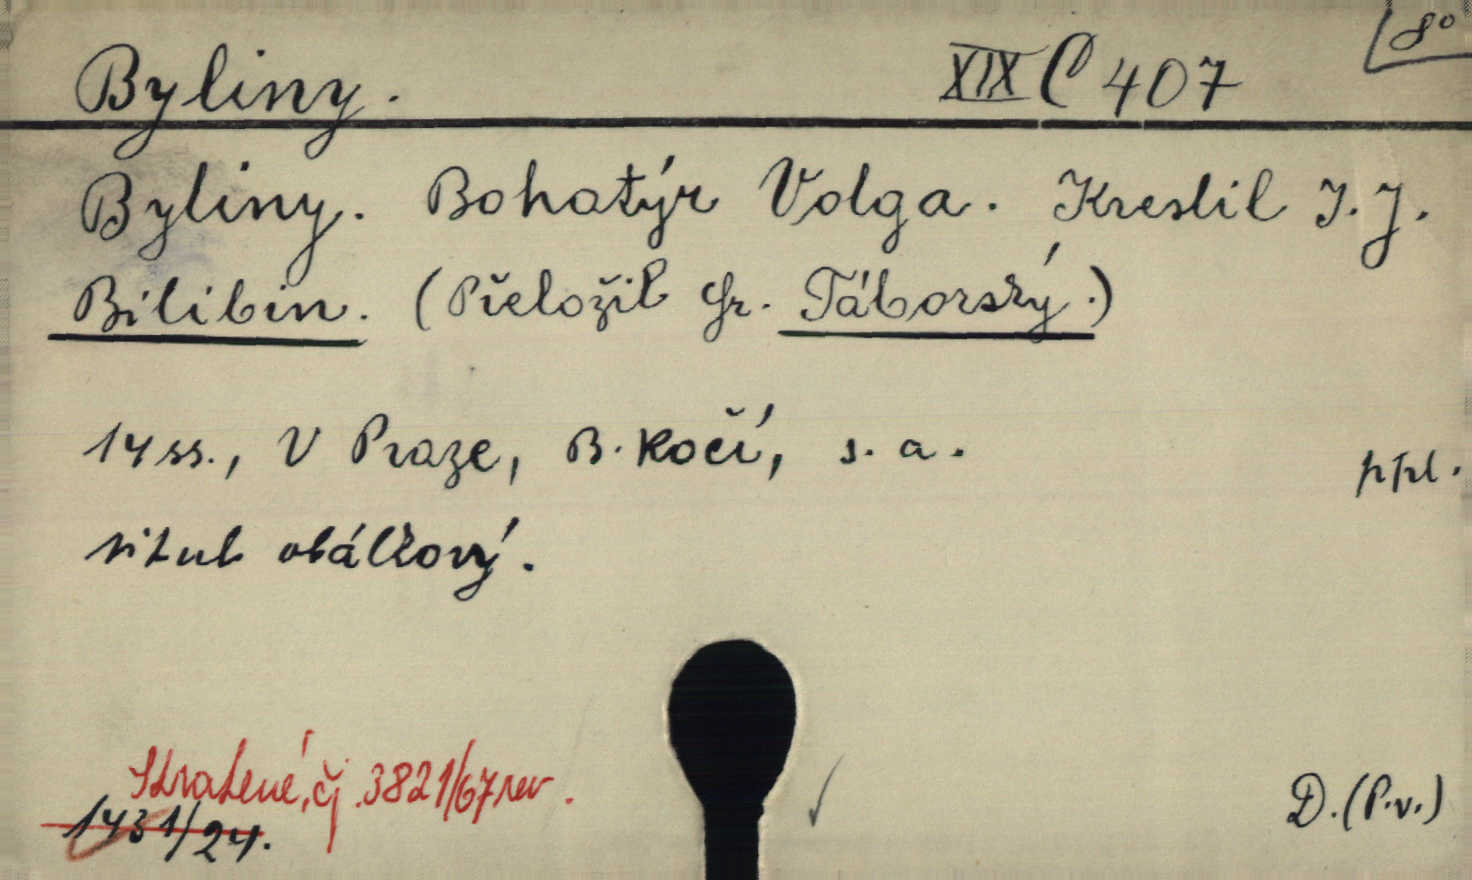 Byliny. XIX C 407 8°
Byliny. Bohatýr Volga. Kreslil I. J.
Bilibin. (Přeložil Fr. Táborský.)
14 ss., V Praze, B. Kočí, s. a.
ppl.
titul obálkový.
Ztratené, čj. 3821/67 rev.
1431/24.
D. (P.v.)